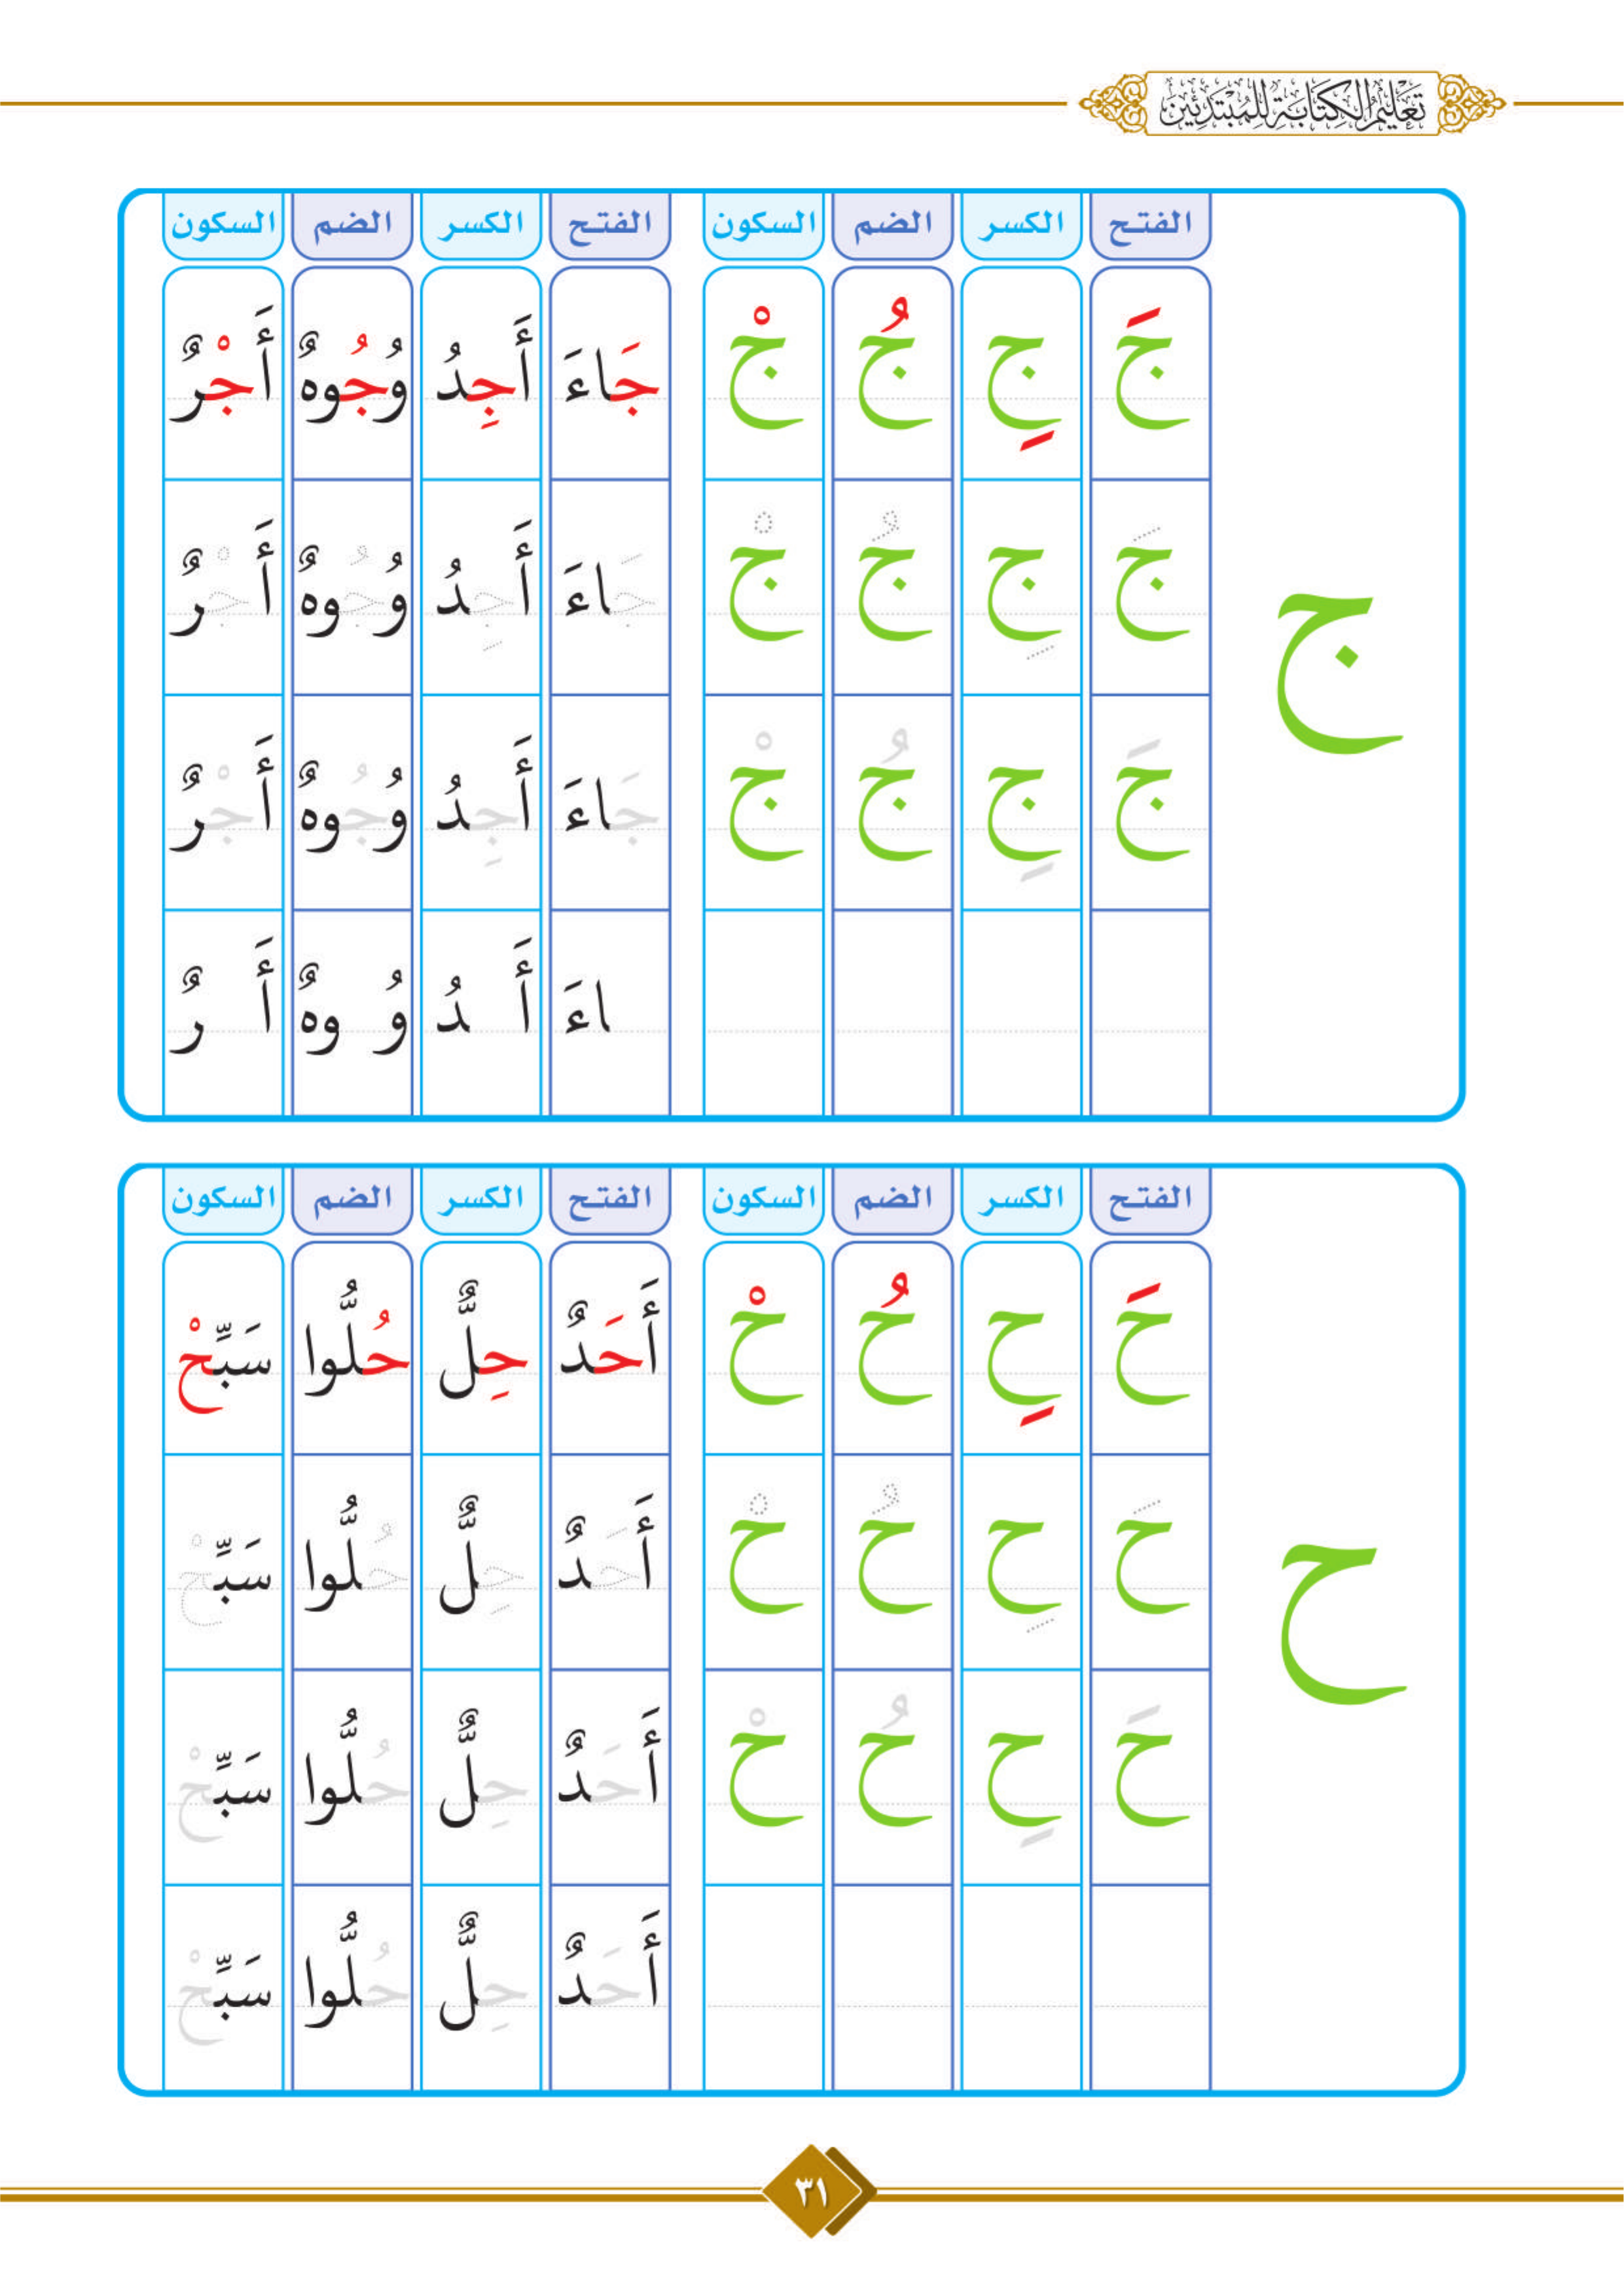 تَعْلِيمُ الْكِتَابَةِ لِلْمُبْتَدِئِينَ
الفتح الكسر الضم السكون الفتح الكسر الضم السكون
جَ جِ جُ جْ جَاءَ أَجِدُ وُجُوهٌ أَجْرٌ
ج
جَ جِ جُ جْ جَاءَ أَجِدُ وُجُوهٌ أَجْرٌ
جَ جِ جُ جْ جَاءَ أَجِدُ وُجُوهٌ أَجْرٌ
اءَ أَ دُ وُ وهٌ أَ رٌ
الفتح الكسر الضم السكون الفتح الكسر الضم السكون
حَ حِ حُ حْ أَحَدٌ حِلٌّ حُلُّوا سَبِّحْ
ح
حَ حِ حُ حْ أَحَدٌ حِلٌّ حُلُّوا سَبِّحْ
حَ حِ حُ حْ أَحَدٌ حِلٌّ حُلُّوا سَبِّحْ
أَحَدٌ حِلٌّ حُلُّوا سَبِّحْ
٣١